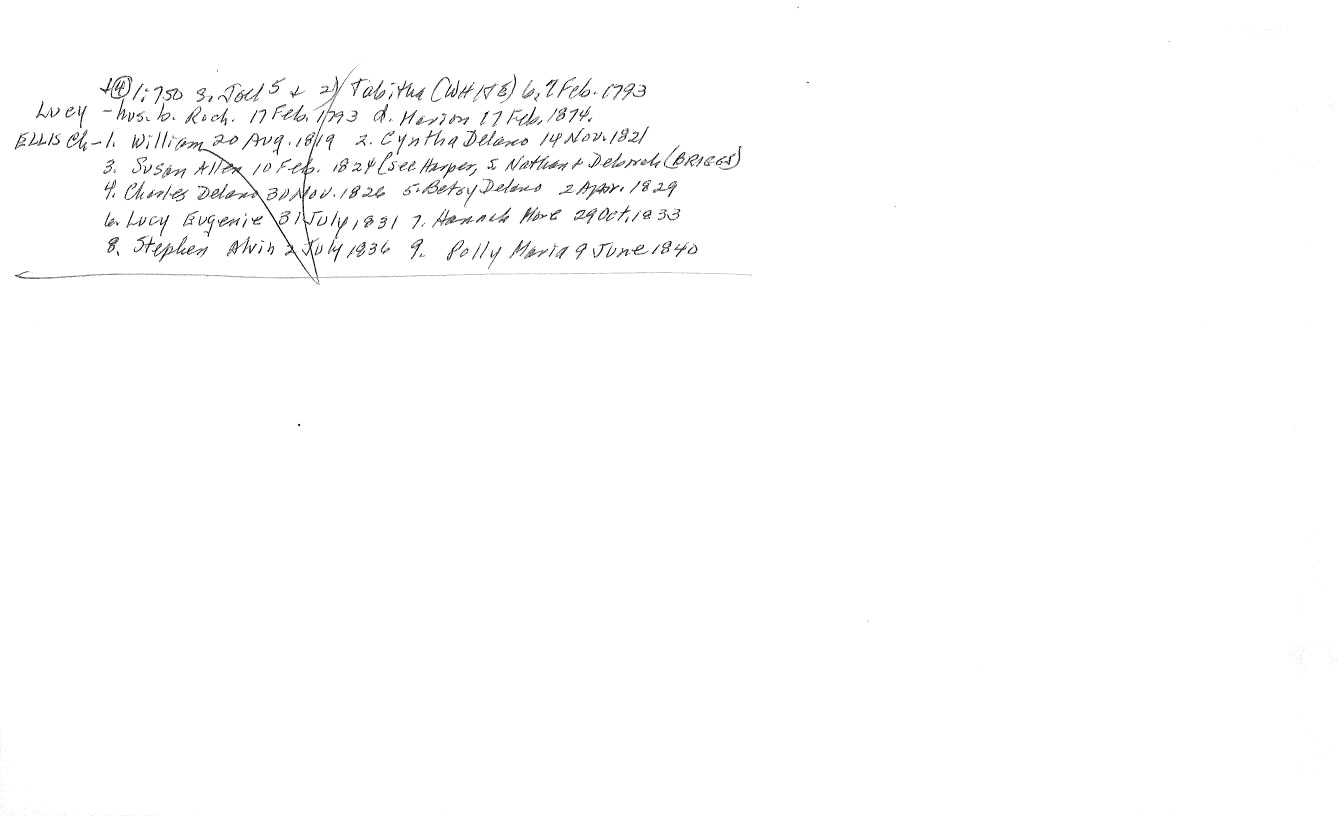 +④ 1:750 s. Joel 5 + 2) Tabitha (WHITE) b. 7 Feb. 1793
Lucy - hus. b. Roch. 17 Feb. 1793 d. Marion 17 Feb. 1874.
ELLIS Ch - 1. William 20 Aug. 1819 2. Cyntha Delano 14 Nov. 1821
3. Susan Allen 10 Feb. 1824 (see Harper, S Nathan + Deborah (BRIGGS)
4. Charles Delano 30 Nov. 1826 5. Betsy Delano 2 Apr. 1829
6. Lucy Eugenie 31 July, 1831 7. Hannah More 29 Oct, 1833
8. Stephen Alvin 2 July 1836 9. Polly Maria 9 June 1840